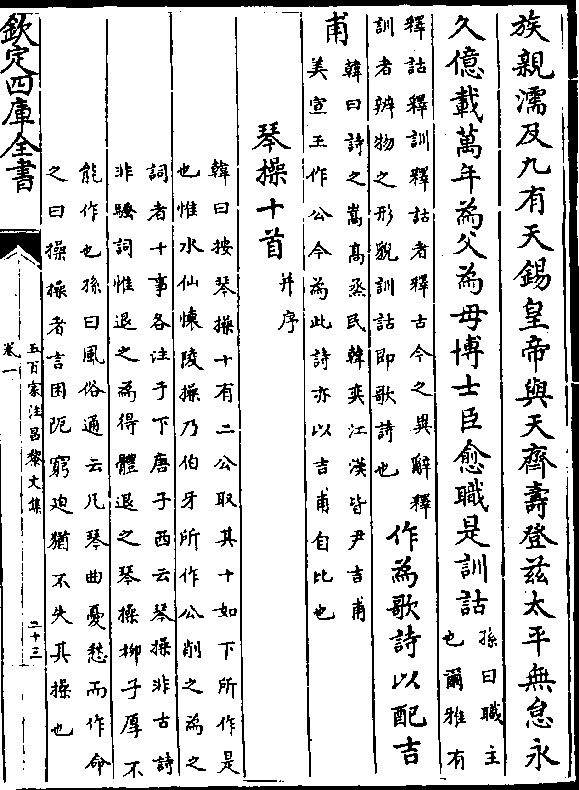 族親濡及九有天錫皇帝與天齊壽登茲太平無怠永
久億載萬年為父為母博士臣愈職是訓詁
孫曰職主
也爾雅有
釋詁釋訓釋詁者釋古今之異辭釋
訓者辨物之形貌訓詁即歌詩也
作為歌詩以配吉
甫
韓曰詩之嵩髙烝民韓奕江漢皆尹吉甫
美宣王作公今為此詩亦以吉甫自比也
琴操十首
并序
韓曰按琴操十有二公取其十如下所作是
也惟水仙懐陵操乃伯牙所作公削之為之
詞者十事各注于下唐子西云琴操非古詩
非騷詞惟退之為得體退之琴操栁子厚不
能作也孫曰風俗通云凡琴曲憂愁而作命
之曰操操者言困阨窮迫猶不失其操也
欽定四庫全書
五百家注昌黎文集
卷一
二十三